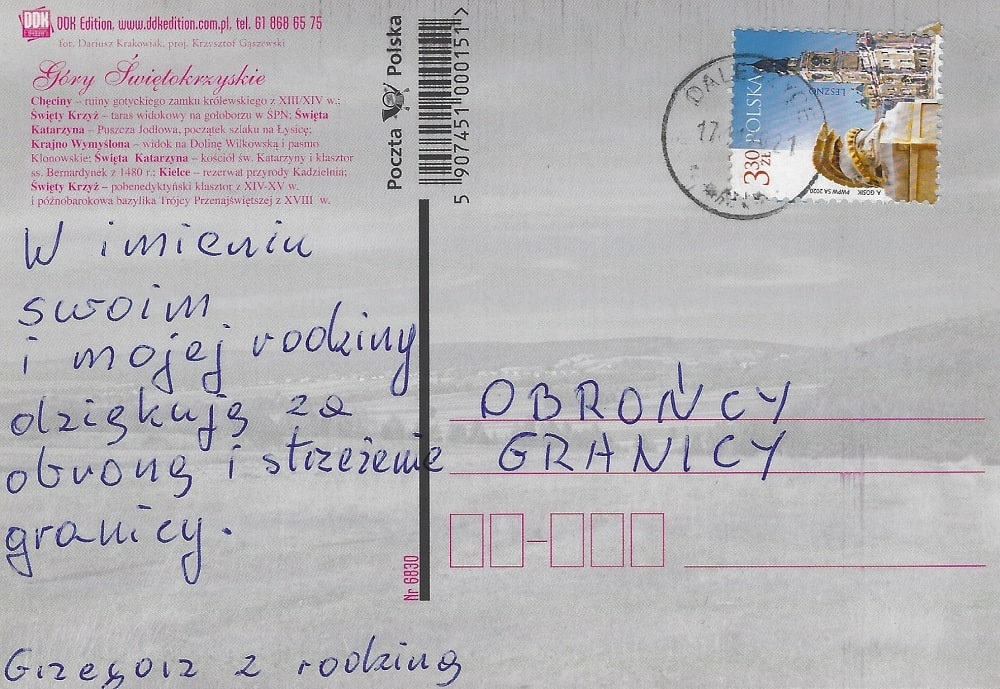 DDK DDK Edition, www.ddkedition.com.pl, tel. 61 868 65 75
fot. Dariusz Krakowiak, proj. Krzysztof Gąszewski
Góry Świętokrzyskie
Chęciny – ruiny gotyckiego zamku królewskiego z XIII/XIV w.;
Święty Krzyż – taras widokowy na gołoborzu w ŚPN; Święta
Katarzyna – Puszcza Jodłowa, początek szlaku na Łysicę;
Krajno Wymyślona – widok na Dolinę Wilkowską i pasmo
Klonowskie; Święta Katarzyna – kościół św. Katarzyny i klasztor
ss. Bernardynek z 1480 r.; Kielce – rezerwat przyrody Kadzielnia;
Święty Krzyż – pobenedyktyński klasztor z XIV-XV w.
i późnobarokowa bazylika Trójcy Przenajświętszej z XVIII w.
Poczta Polska
5 907451 000151>
POLSKA
3,30 ZŁ
LESZNO
A. GOSIK PWPW SA 2020
W imieniu
swoim
i mojej rodziny
dziękuję za
obronę i strzeżenie
granicy.
Grzegorz z rodziną
Nr 6830
OBROŃCY
GRANICY